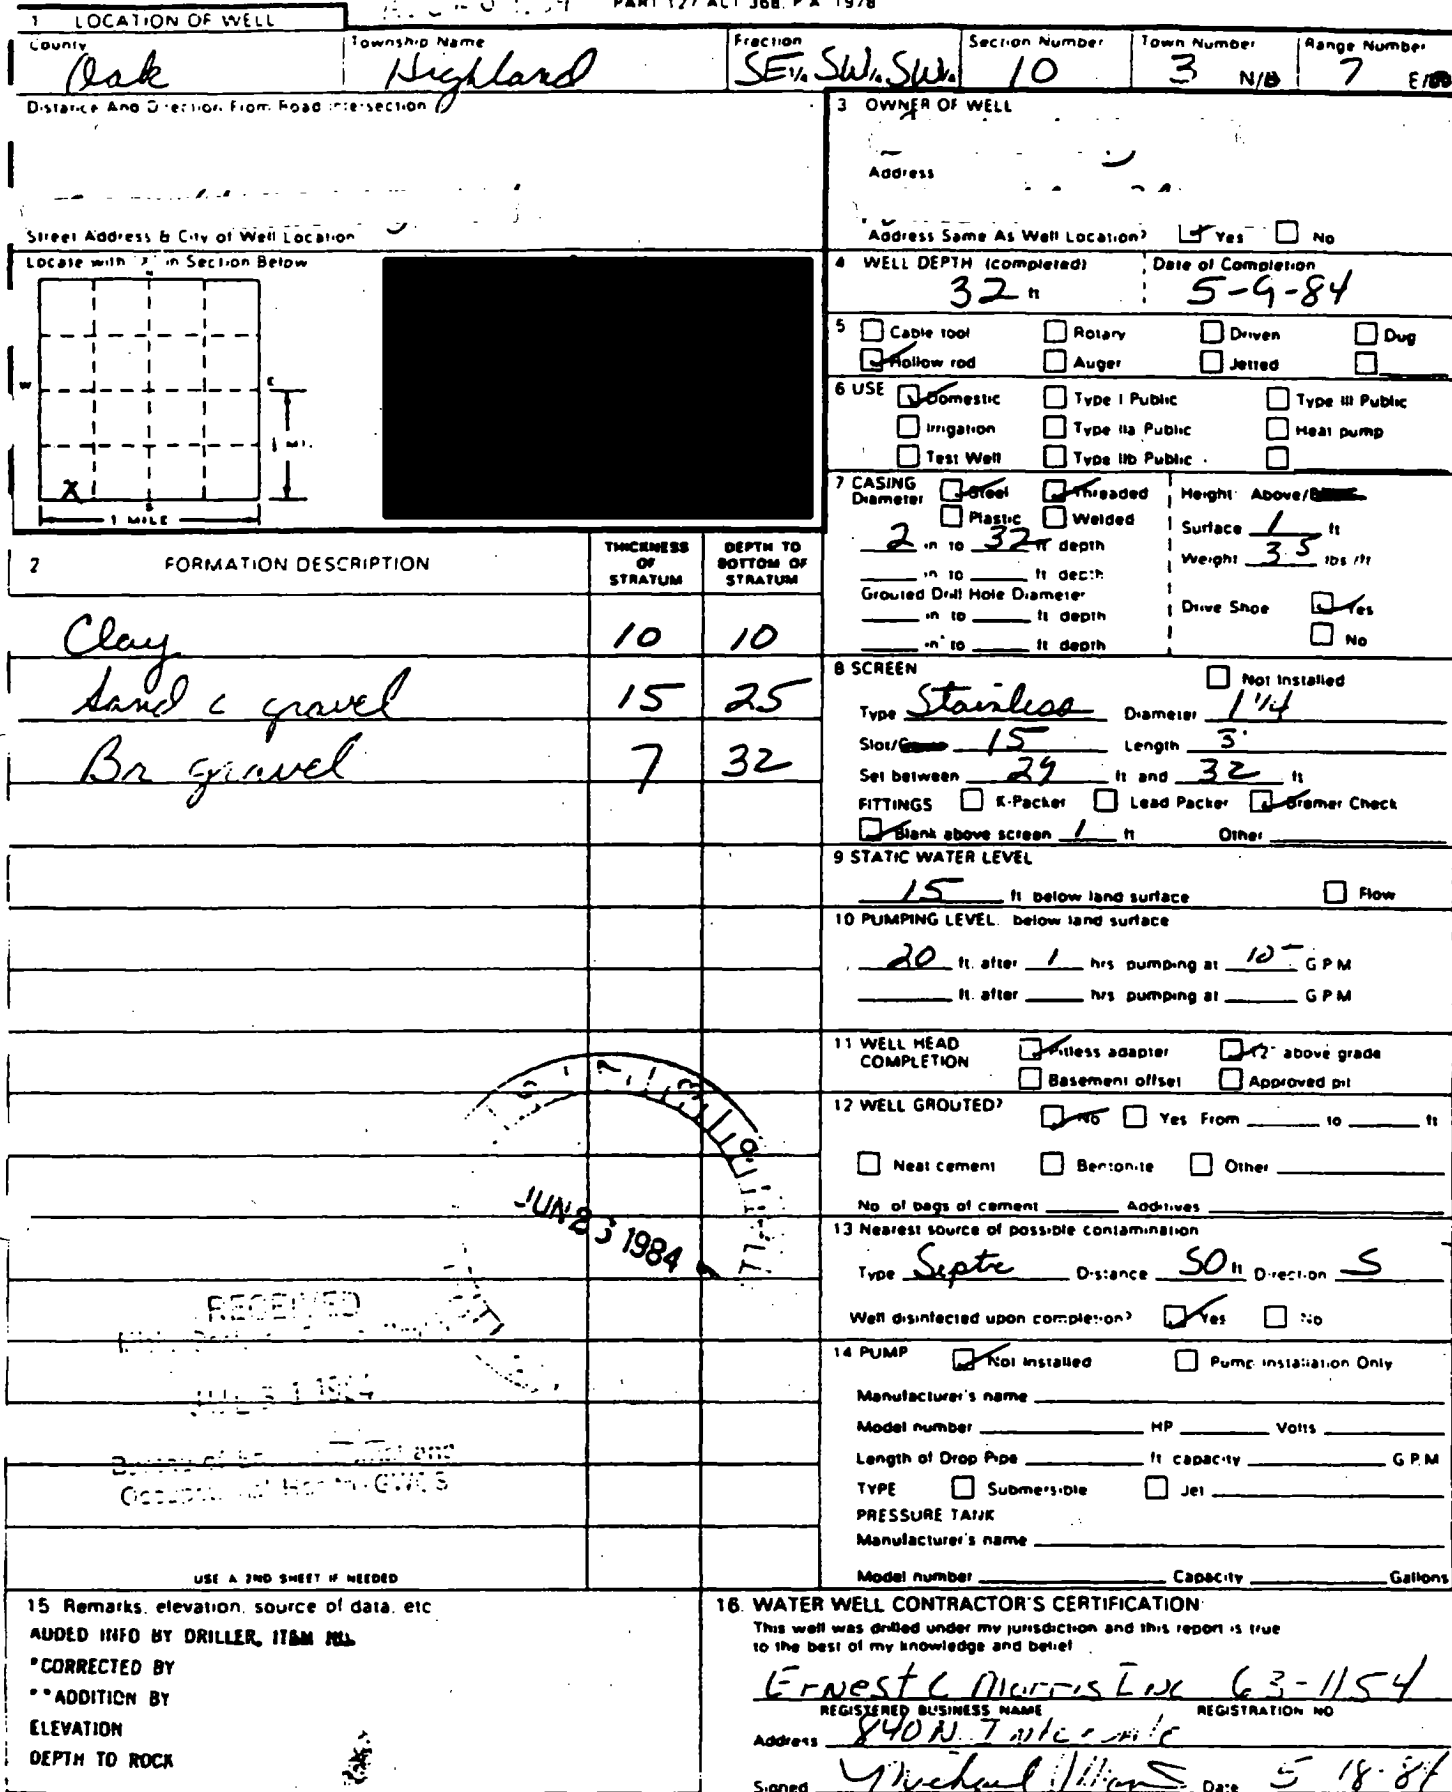 PART 127 ACT 368, P.A. 1978
1 LOCATION OF WELL
County Township Name Fraction Section Number Town Number Range Number
Oak Highland SE¼ SW¼ SW¼ 10 3 N/S 7 E/W
Distance And Direction From Road Intersection
Street Address & City of Well Location
Locate with "X" in Section Below
N
W
E
½ MI.
X
S
1 MILE
3 OWNER OF WELL
Address
Address Same As Well Location? Yes No
4 WELL DEPTH (completed) Date of Completion
32 ft 5-9-84
5 Cable tool Rotary Driven Dug
Hollow rod Auger Jetted
6 USE Domestic Type I Public Type III Public
Irrigation Type IIa Public Heat pump
Test Well Type IIb Public
7 CASING Steel Threaded Height: Above/
Diameter Plastic Welded Surface 1 ft
2 in to 32 ft depth Weight 3.5 lbs/ft
in to ft depth
Grouted Drill Hole Diameter Drive Shoe Yes
in to ft depth No
in to ft depth
2 FORMATION DESCRIPTION THICKNESS OF STRATUM DEPTH TO BOTTOM OF STRATUM
Clay 10 10
Sand c gravel 15 25
Br gravel 7 32
8 SCREEN Not Installed
Type Stainless Diameter 1 1/4
Slot/ 15 Length 3'
Set between 29 ft and 32 ft
FITTINGS K-Packer Lead Packer Bremer Check
Blank above screen 1 ft Other
9 STATIC WATER LEVEL
15 ft below land surface Flow
10 PUMPING LEVEL below land surface
20 ft. after 1 hrs pumping at 10 G P M
ft. after hrs pumping at G P M
11 WELL HEAD COMPLETION Pitless adapter 12" above grade
Basement offset Approved pit
12 WELL GROUTED? No Yes From to ft
Neat cement Bentonite Other
No of bags of cement Additives
13 Nearest source of possible contamination
Type Septic Distance 50 ft Direction S
Well disinfected upon completion? Yes No
14 PUMP Not Installed Pump Installation Only
Manufacturer's name
Model number HP Volts
Length of Drop Pipe ft capacity G P M
TYPE Submersible Jet
PRESSURE TANK
Manufacturer's name
Model number Capacity Gallons
JUN 1984
RECEIVED
1984
USE A 2ND SHEET IF NEEDED
15 Remarks, elevation, source of data, etc
ADDED INFO BY DRILLER, ITEM NO.
*CORRECTED BY
**ADDITION BY
ELEVATION
DEPTH TO ROCK
16. WATER WELL CONTRACTOR'S CERTIFICATION
This well was drilled under my jurisdiction and this report is true
to the best of my knowledge and belief
Ernest C Morris Inc 63-1154
REGISTERED BUSINESS NAME REGISTRATION NO
Address 840 N.
Signed Michael Date 5-18-84